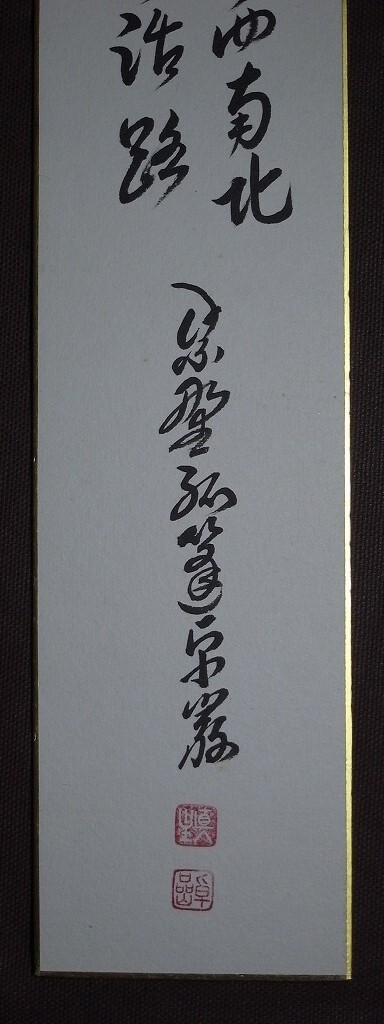 西南北
活路
紫野孤篷宗巌